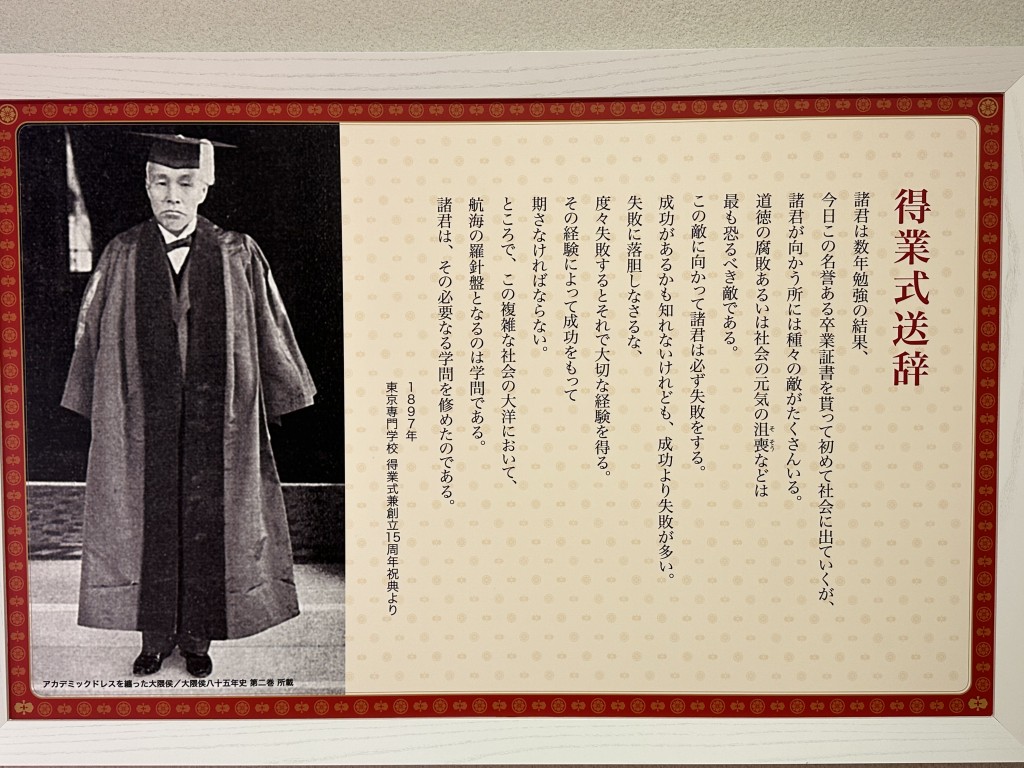 得業式送辞
諸君は数年勉強の結果、
今日この名誉ある卒業証書を貰って初めて社会に出ていくが、
諸君が向かう所には種々の敵がたくさんいる。
道徳の腐敗あるいは社会の元気の沮喪などは
そそう
最も恐るべき敵である。
この敵に向かって諸君は必ず失敗をする。
成功があるかも知れないけれども、成功より失敗が多い。
失敗に落胆しなさるな、
度々失敗するとそれで大切な経験を得る。
その経験によって成功をもって
期さなければならない。
ところで、この複雑な社会の大洋において、
航海の羅針盤となるのは学問である。
諸君は、その必要なる学問を修めたのである。
1897年
東京専門学校 得業式兼創立15周年祝典より
アカデミックドレスを纏った大隈侯／大隈侯八十五年史 第二巻 所載